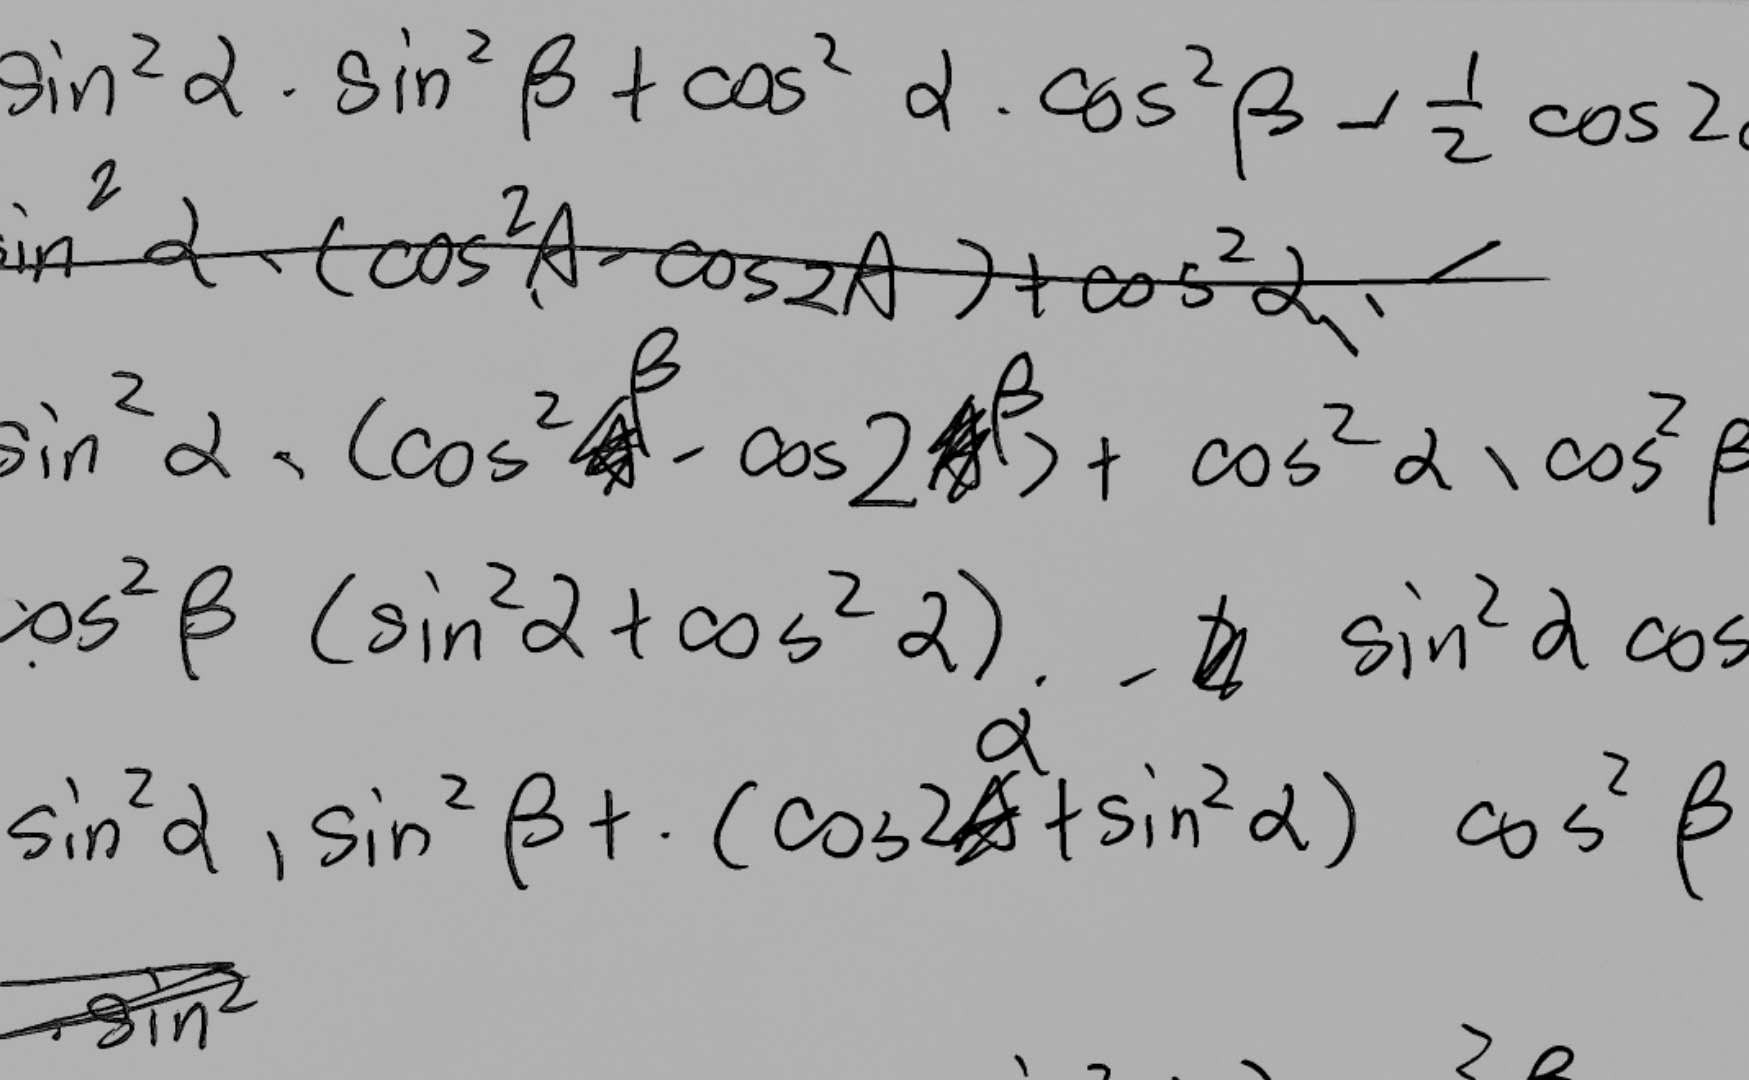 sin² α · sin² β + cos² α · cos² β - 1/2 cos 2
in² α · (cos² A - cos2A) + cos² α ·
sin² α · (cos² β - cos 2 β) + cos² α · cos² β
cos² β (sin² α + cos² α) · - sin² α cos
sin² α · sin² β + · (cos 2 α + sin² α) cos² β
sin²